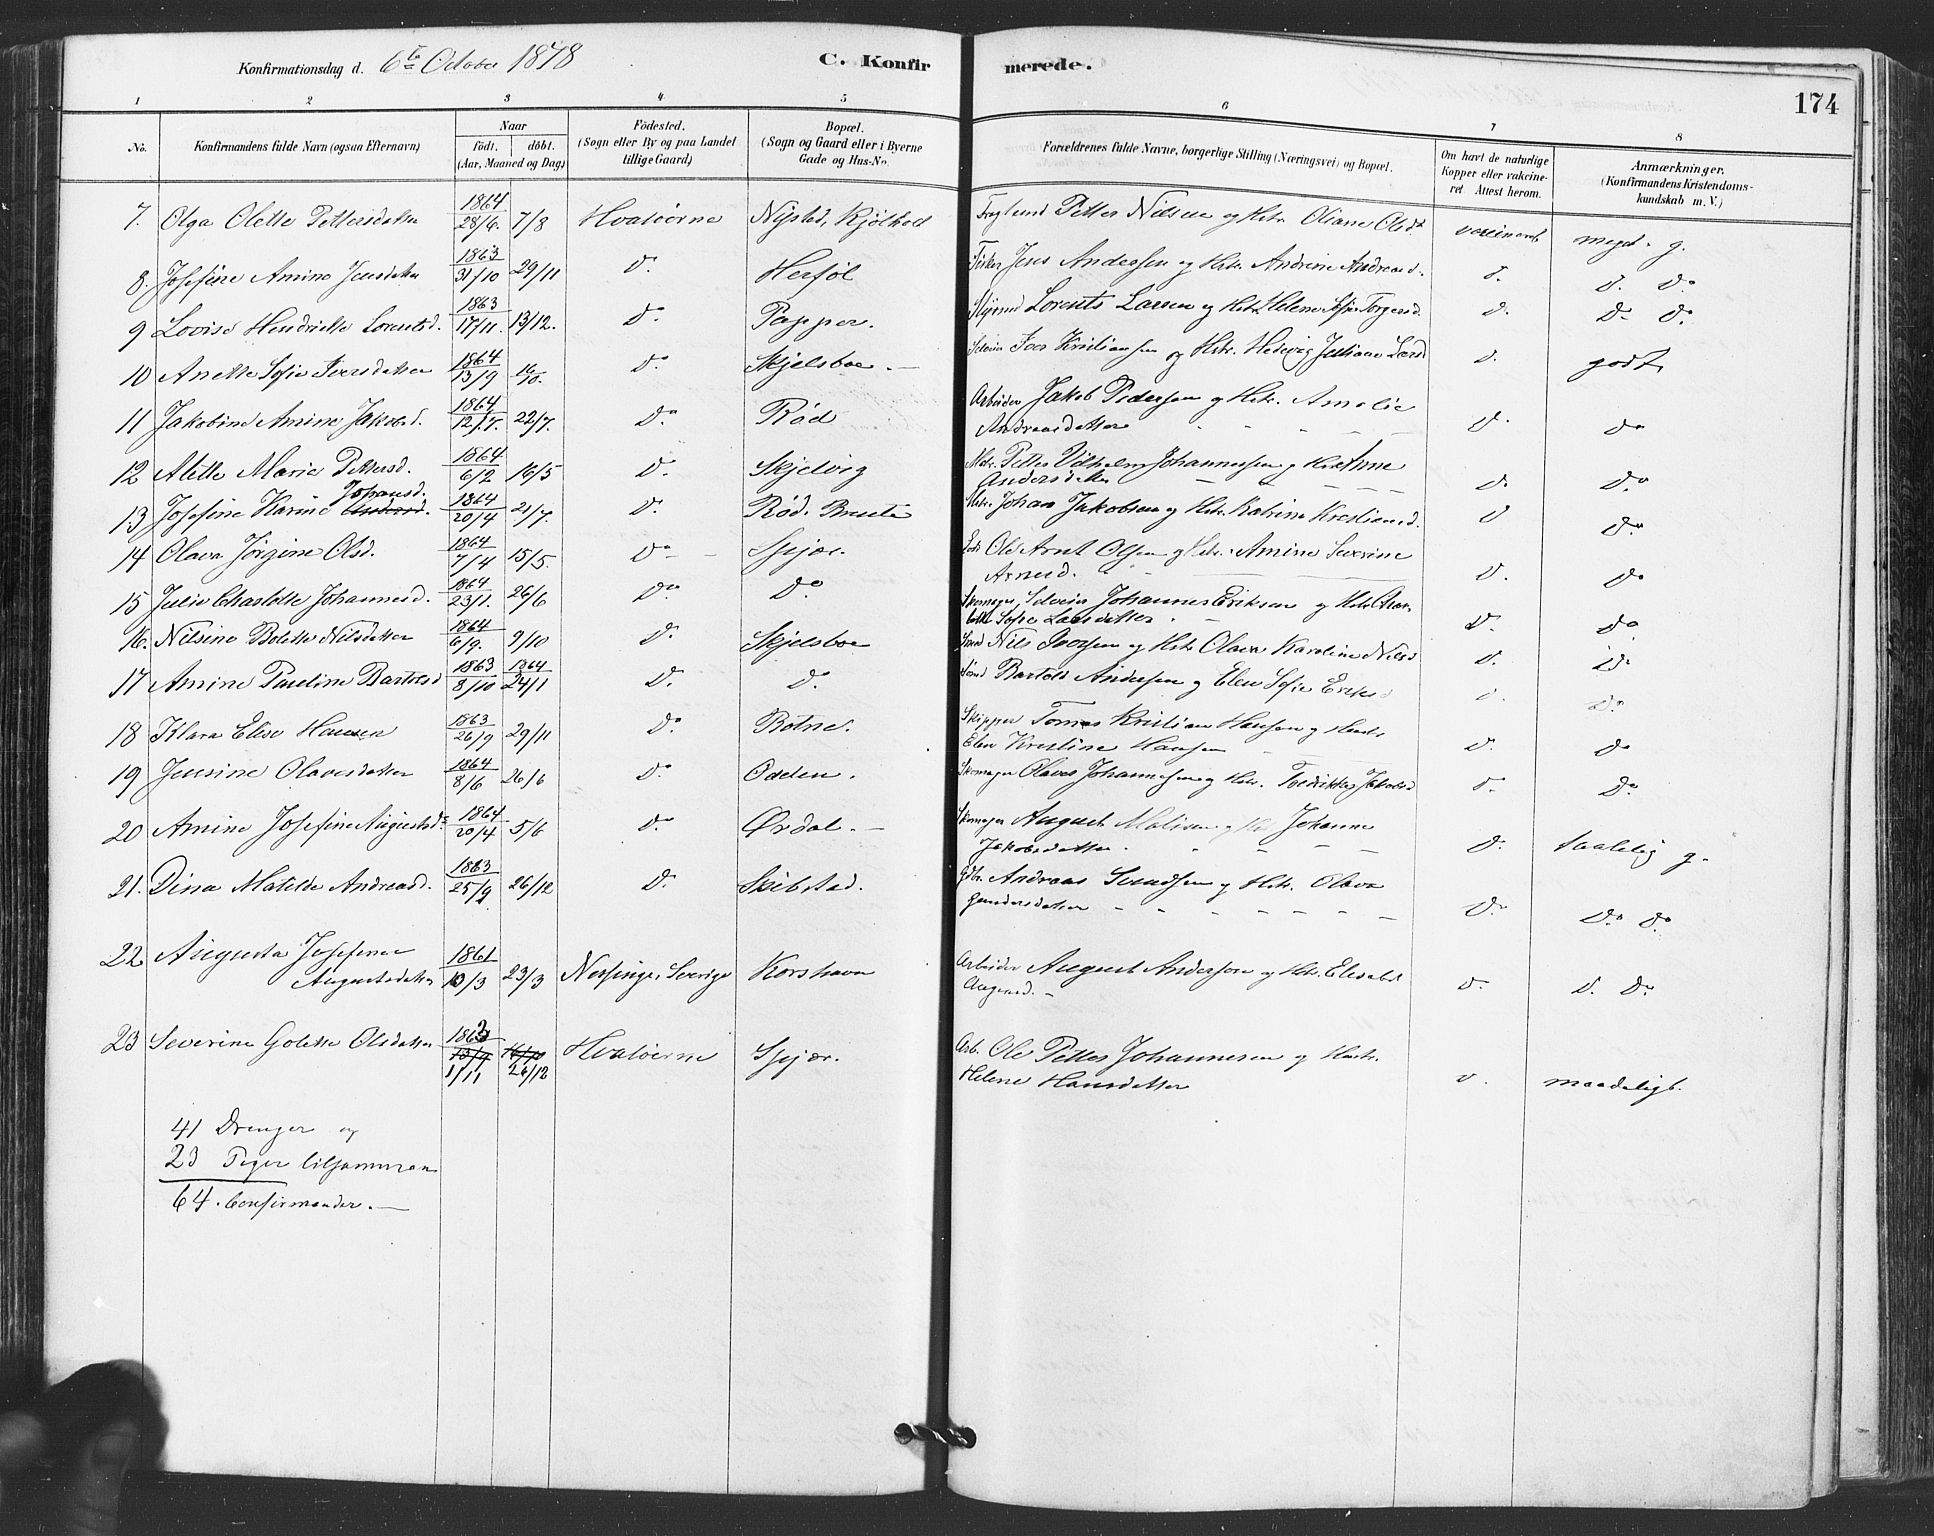 Konfirmationsdag d. 6te October 1878 C. Konfirmerede. 174
1 2 3 4 5 6 7 8
No. Konfirmandens fulde Navn (ogsaa Efternavn) Naar födt. döbt. (Aar, Maaned og Dag) Födested. (Sogn eller By og paa Landet tillige Gaard) Bopæl. (Sogn og Gaard eller i Byerne Gade og Hus-No. Forældrenes fulde Navne, borgerlige Stilling (Næringsvei) og Bopæl. Om havt de naturlige Kopper eller vakcineret. Attest herom. Anmærkninger. (Konfirmandens Kristendomskundskab m. V.)
7. Olga Olette Pettersdatter 1864 28/6. 7/8 Hvaløerne Nysted, Kjölholt Petter Nilsen og Hstr. Oliane Olsdt meget g.
8. Josefine Amine Jensdatter 1863 31/10 29/11 do. Herföl Fisker Jens Andersen og Hstr. Andrine Andreasd. do. do. do
9 Lovise Hendrikke Lorentsd. 1863 17/11. 13/12. do. Papper. Lorents Larsen og Hstr. Helene Sofie Torgersd. do. do. do.
10 Anette Sofie Iversdatter 1864 13/9 16/10. do. Skjelsboe. — Selveier Iver Kristiansen og Hstr. Hedevig Juliane Larsd do. godt
11 Jakobine Amine Jakobsd. 1864 12/7. 22/7. do Röd Arbeider Jakob Pedersen og Hstr. Amalie
Andreasdatter do. do
12 Alette Marie Pettersd. 1864 6/2 16/5 do. Skjelvig Petter Vilhelm Johannessen og Hstr Anne
Andersdatter do. do.
13 Josefine Karine Johansd. 1864 20/4 21/7. do. Röd. Brente Johan Jakobsen og Hstr. Katrine Kristiansd. do do.
14 Olava Jörgine Olsd. 1864 7/4 15/5. do Spjær. Ole Arnt Olsen og Hstr. Amine Severine
Arnesd. do. do
15 Julie Charlotte Johannesd. 1864 23/1. 26/6 do. do Skomager, Selveier Johannes Eriksen og Hstr. Char-
lotte Sofie Larsdatter. do. do.
16. Nilsine Bolette Nilsdatter 1864 6/9. 9/10 do. Skjelsboe Nils Iversen og Hstr Olava Karoline Nilsd do. do
17 Amine Pauline Bartolsd 1863 8/10 1864 24/1 do. do. Bartols Andersen og Elen Sofie Eriksd do. do.
18 Klara Elise Hansen 1863 26/9 29/11 do. Botne. Skipper Tomas Kristian Hansen og Hustr
Elen Kristine Hansen do. do
19 Jensine Olavesdatter 1864 8/6 26/6 do. Odden. Skomager Olaves Johannesen og Hstr. Fredrikke Jakobsd do. do.
20 Amine Josefine Augustsd. 1864 20/4 5/6 do. Ørdal. — Skomager August Matisen og Hst Johanne
Jakobsdatter. do. taalelig g.
21. Dina Matilde Andreasd. 1863 25/9 26/12 do. Skibstad. Gdbr. Andreas Svendsen og Hstr. Olava
Gundersdatter do. do. do.
22 Augusta Josefine
Augustsdatter 1861 10/3 23/3 Nesfinge, Sverige Korshavn Arbeider August Anderson og Hstr. Elisabet
Aagaard. — do. do. do.
23 Severine Golette Olsdatter 1862 13/9 1/11 26/12 Hvaløerne Spjær. Arb. Ole Petter Johannesen og Hustr.
Helene Hansdatter do. maadeligt.
41 Drenger og
23 Piger tilsammen
64. Confirmander. —